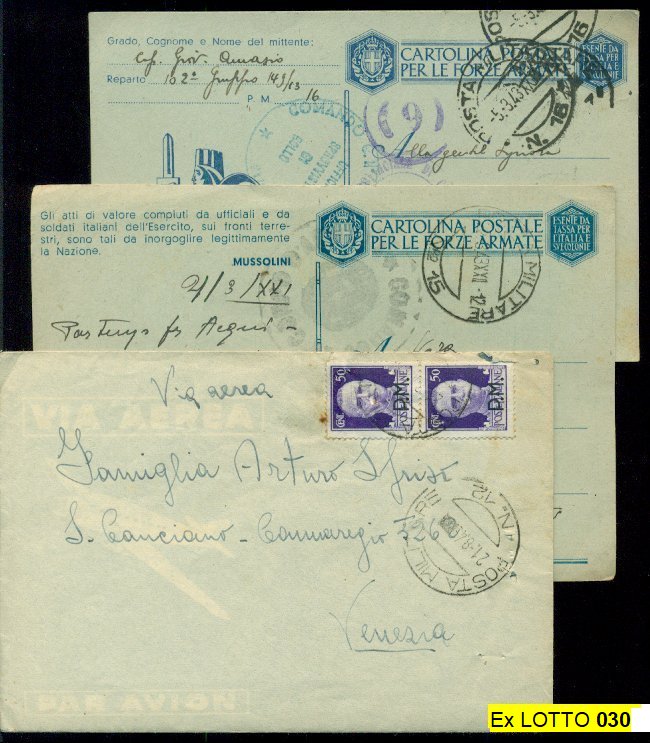 Grado, Cognome e Nome del mittente:
Reparto 102° Gruppo 149/13
P M 16
CARTOLINA POSTALE
PER LE FORZE ARMATE
ESENTE DA
TASSA PER
L'ITALIA E
COLONIE
COMANDO
(9)
POSTA
N. 16
Alla gentile Signora
Gli atti di valore compiuti da ufficiali e da
soldati italiani dell'Esercito, sui fronti terre-
stri, sono tali da inorgoglire legittimamente
la Nazione.
MUSSOLINI
CARTOLINA POSTALE
PER LE FORZE ARMATE
ESENTE DA
TASSA PER
L'ITALIA E
SVE COLONIE
MILITARE
N. 15
/3/XXI
Via aerea
VIA AEREA
50
P.M.
50
P.M.
Famiglia Arturo
S. Canciano - Cannaregio
Venezia
POSTA MILITARE
N. 12
PAR AVION
Ex LOTTO 030